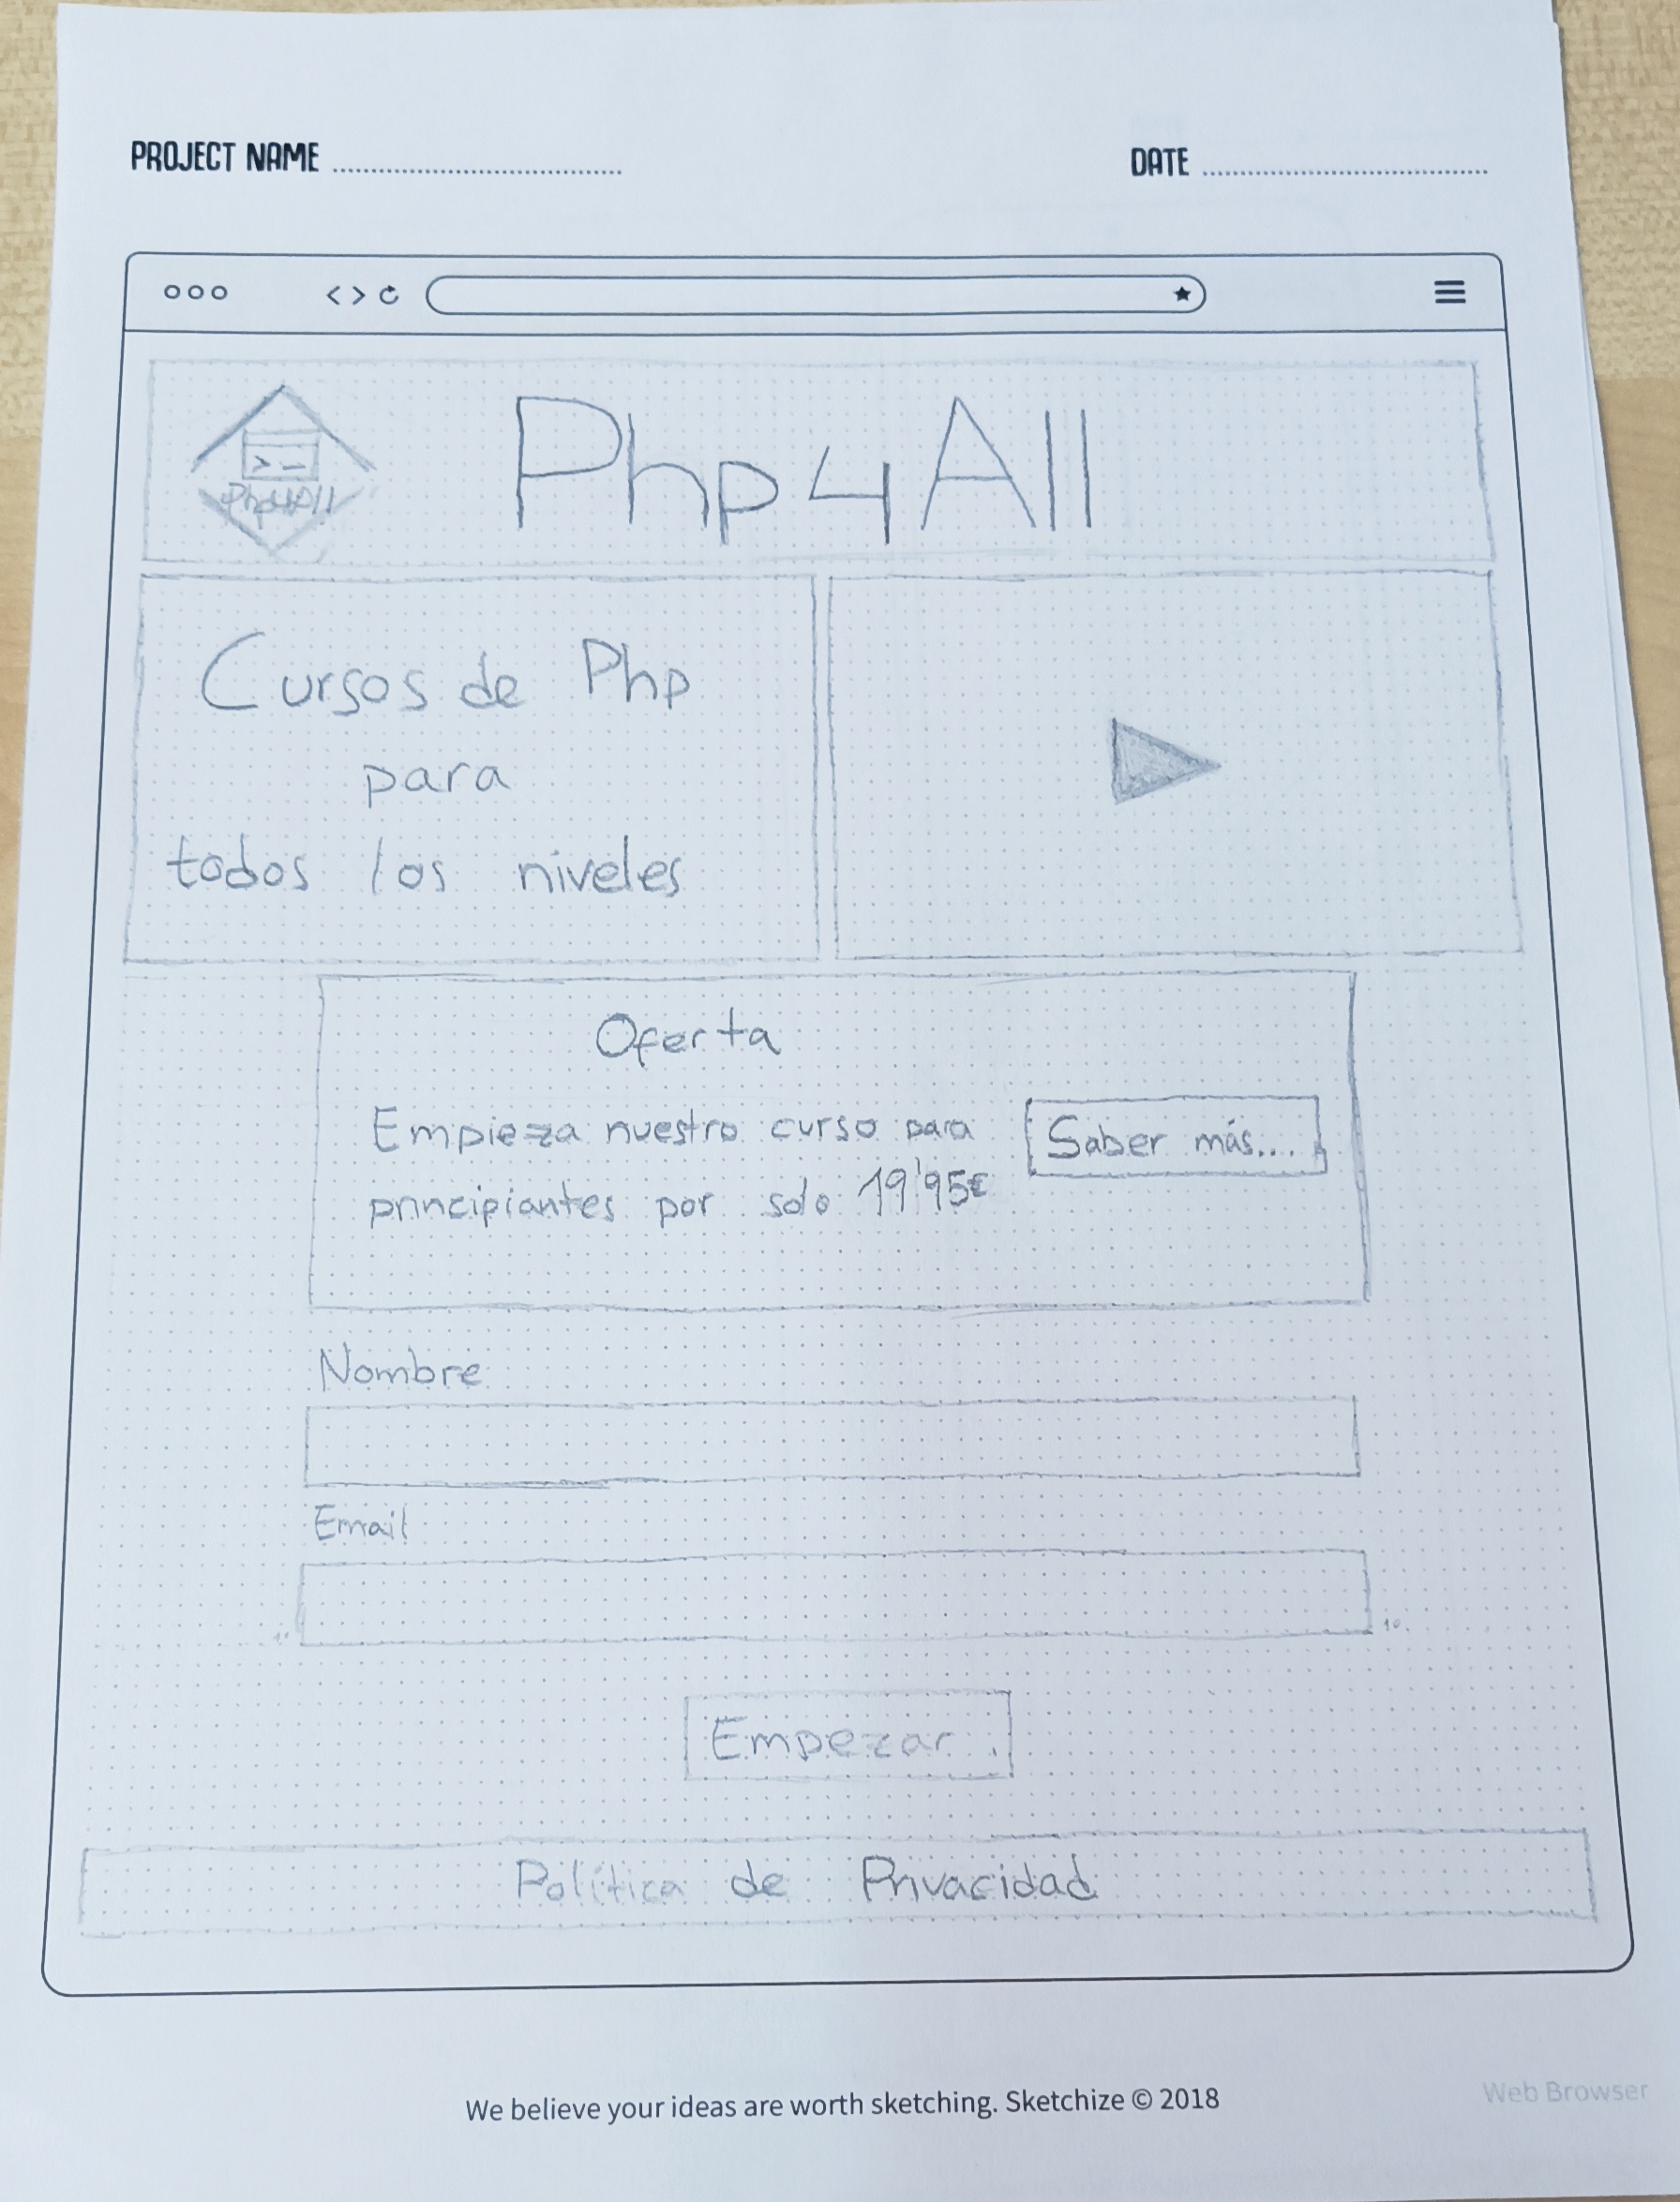 PROJECT NAME
DATE
Php4All
Php4All
Cursos de Php
para
todos los niveles
Oferta
Empieza nuestro curso para
principiantes por solo 19'95€
Saber más...
Nombre
Email
Empezar
Política de Privacidad
We believe your ideas are worth sketching. Sketchize © 2018
Web Browser